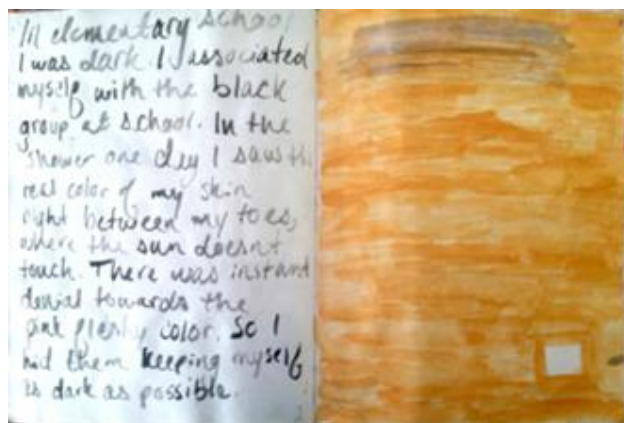 In elementary school
I was dark I associated
myself with the black
group at school. In the
shower one day I saw the
real color of my skin
right between my toes,
where the sun doesnt
touch. There was instant
denial towards the
pink fleshy color. So I
hid them keeping myself
as dark as possible.